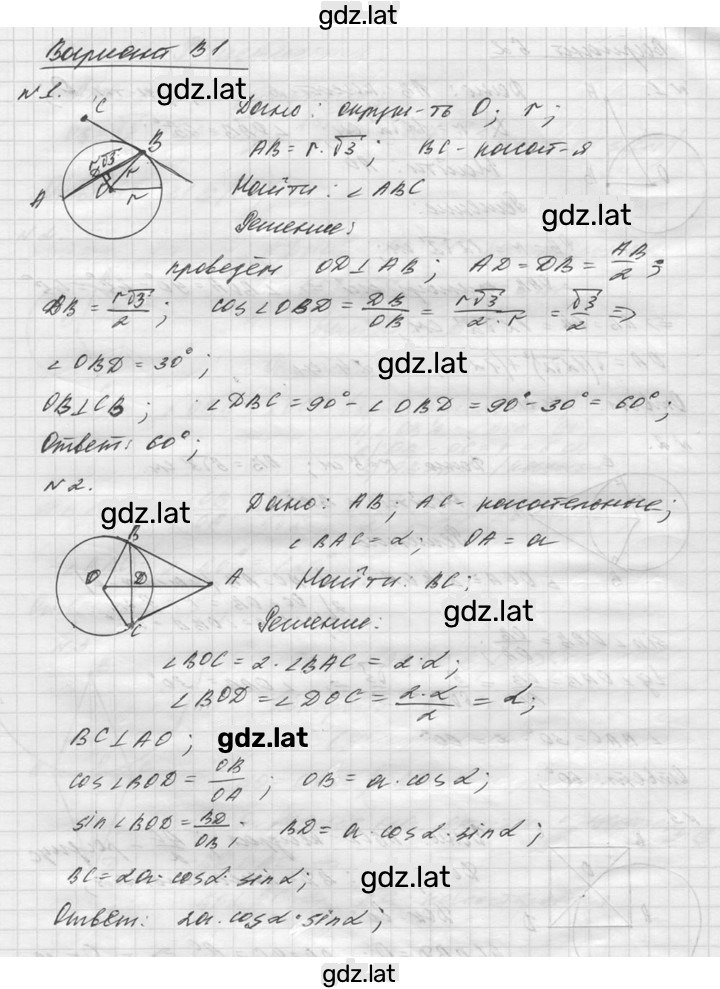 gdz.lat
Вариант В1
gdz.lat
№1.
Дано: окруж-ть O; r;
AB = r·√3; BC - касат-я
Найти: ∠ABC
gdz.lat
Решение:
C
B
A
r√3
r
O
r
проведём OD⊥AB; AD = DB = AB/2;
DB = r√3/2; cos∠OBD = DB/OB = r√3/2·r = √3/2 ⇒
∠OBD = 30°;
gdz.lat
OB⊥CB; ∠DBC = 90° - ∠OBD = 90° - 30° = 60°;
Ответ: 60°;
№2.
gdz.lat
Дано: AB; AC - касательные;
∠BAC = α; OA = a
Найти: BC;
gdz.lat
Решение:
B
O
D
A
C
∠BOC = 2·∠BAC = 2·α;
∠BOD = ∠DOC = 2·α/2 = α;
BC⊥AO;
gdz.lat
cos∠BOD = OB/OA; OB = a·cosα;
sin∠BOD = BD/OB; BD = a·cosα·sinα;
BC = 2a·cosα·sinα;
gdz.lat
Ответ: 2a·cosα·sinα;
gdz.lat